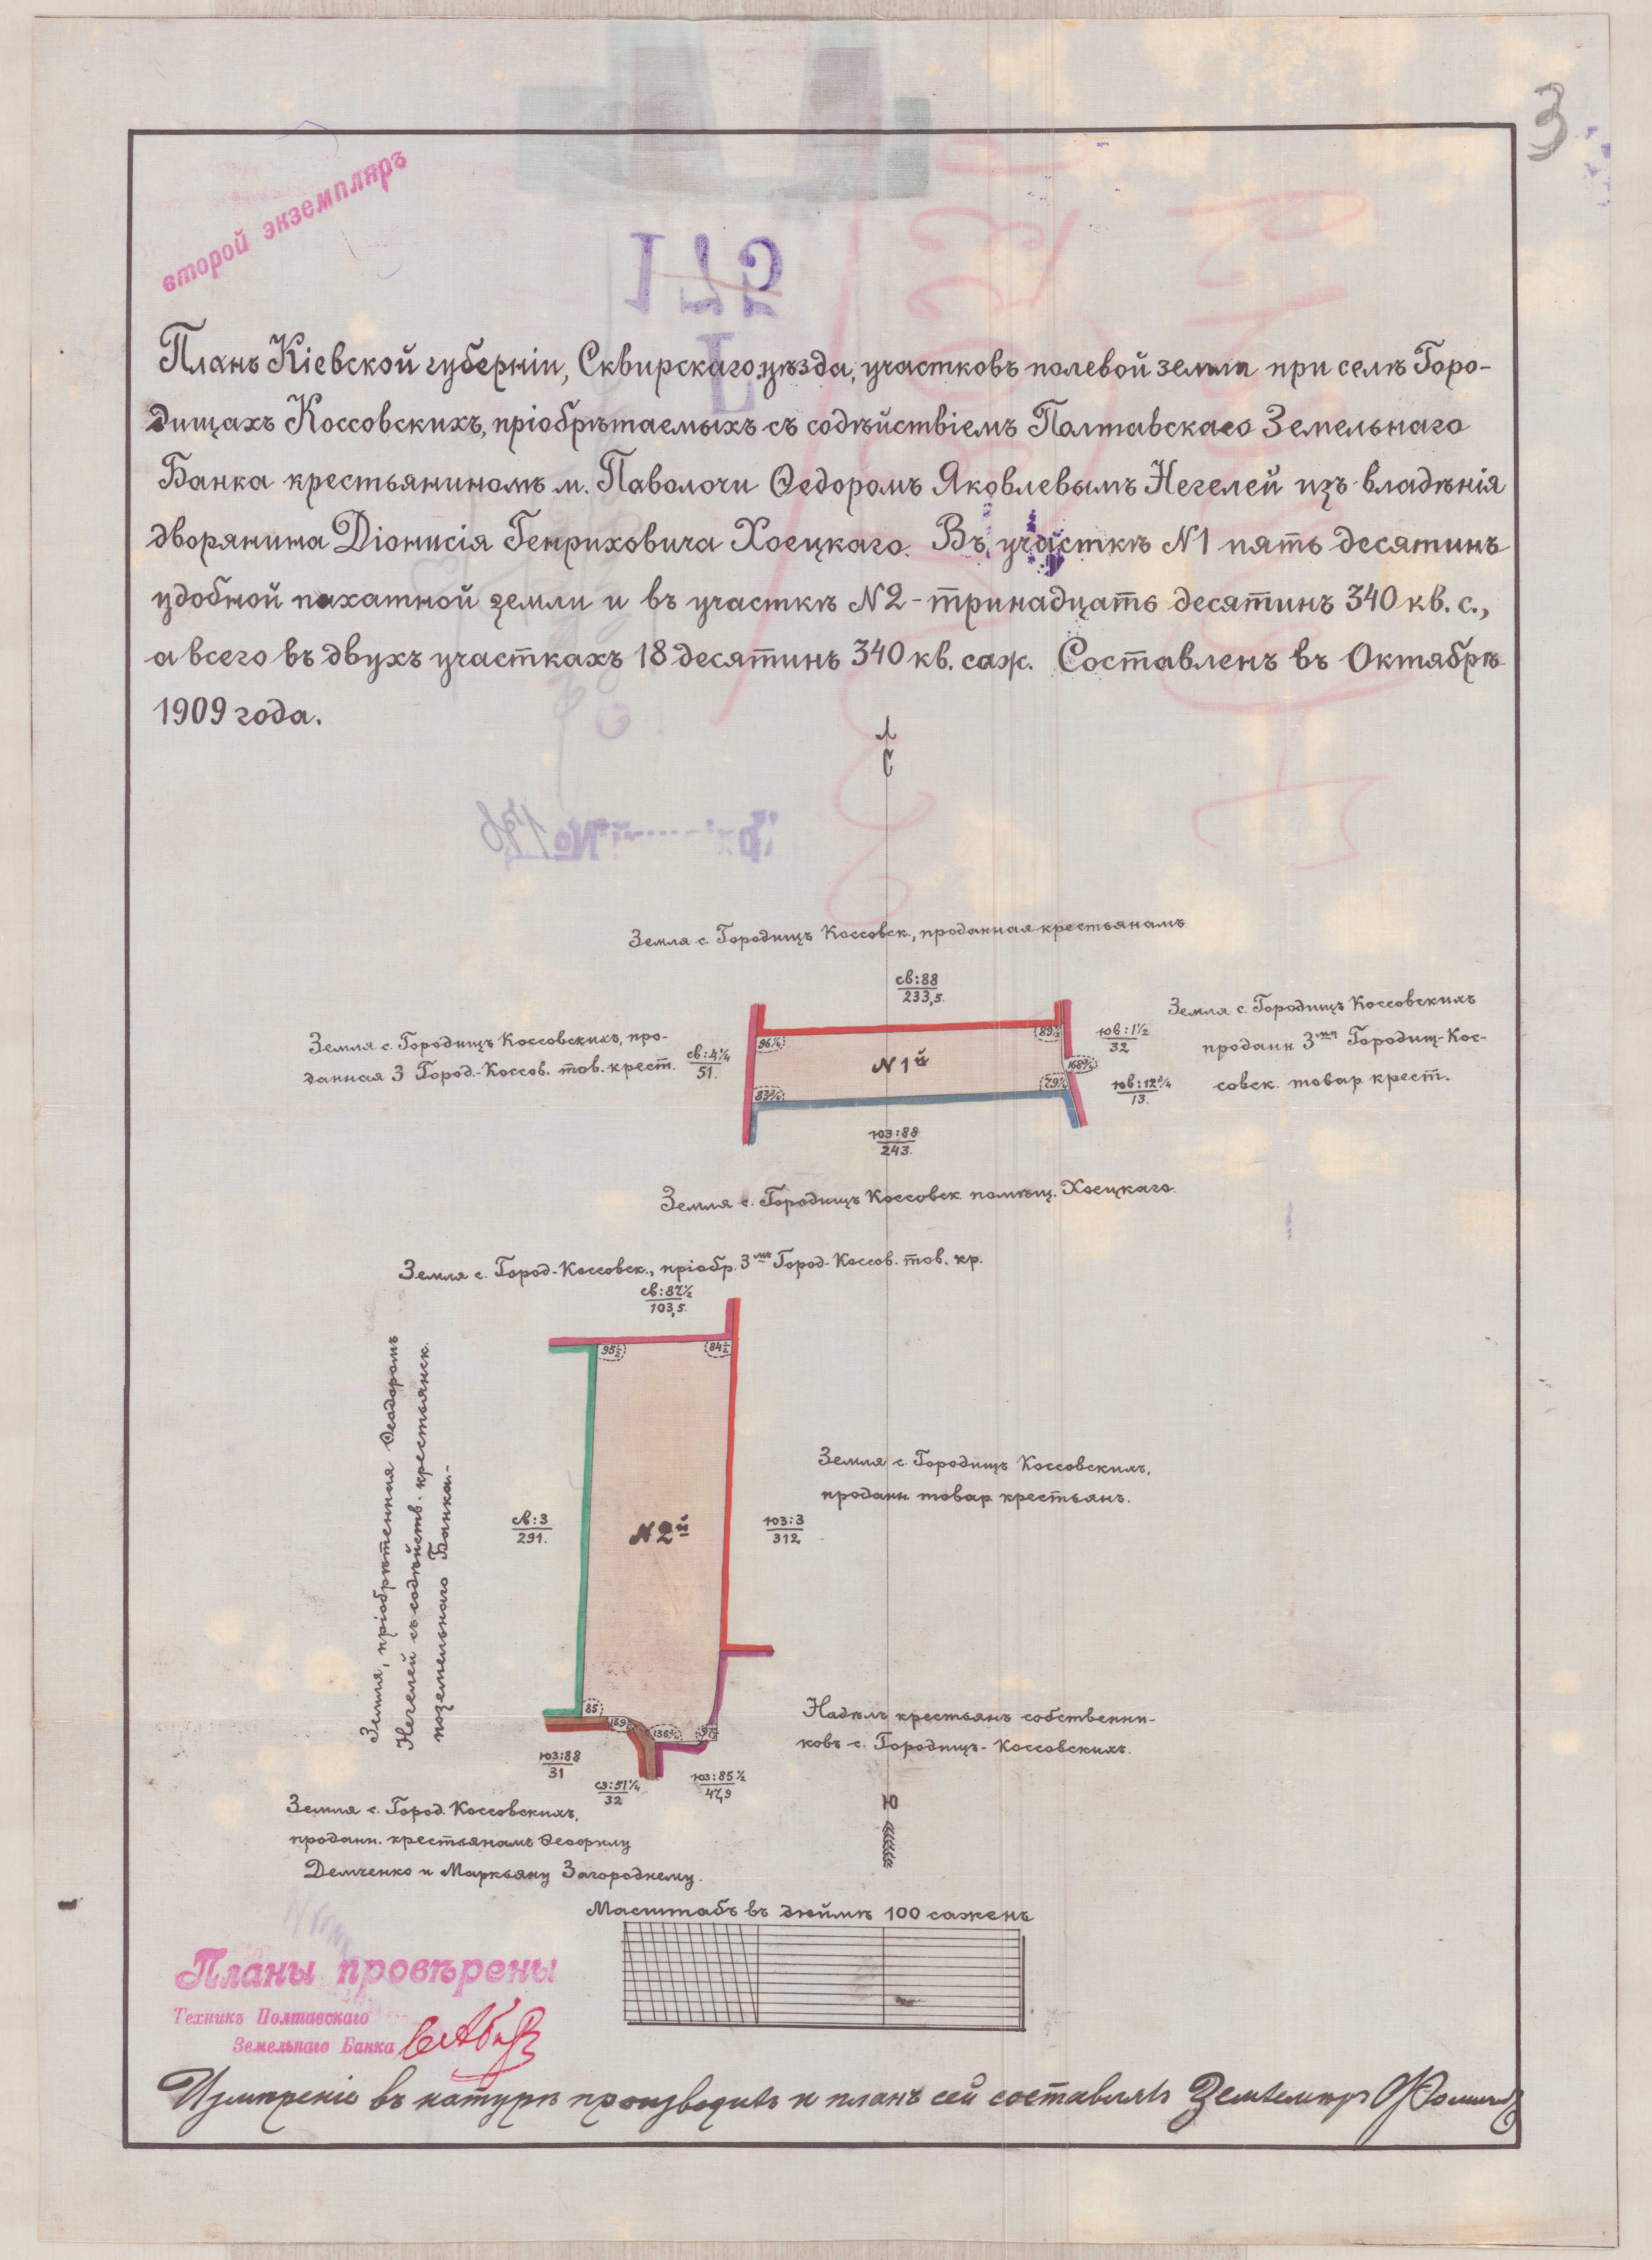 3
второй экземпляръ
Планъ Кіевской губерніи, Сквирскаго уѣзда, участковъ полевой земли при селѣ Горо-
дищахъ Коссовскихъ, пріобрѣтаемыхъ съ содѣйствіемъ Полтавскаго Земельнаго
Банка крестьяниномъ м. Паволочи Ѳедоромъ Яковлевымъ Негелей изъ владѣнія
дворянина Діонисія Генриховича Хоецкаго. Въ участкѣ N1 пять десятинъ
удобной пахатной земли и въ участкѣ N2 - тринадцать десятинъ 340 кв. с.,
а всего въ двухъ участкахъ 18 десятинъ 340 кв. саж. Составленъ въ Октябрѣ
1909 года.
С
Земля с. Городищъ Коссовск., проданная крестьянамъ
св:88
233,5.
Земля с. Городищъ Коссовскихъ, про-
данная 3 Город.-Коссов. тов. крест.
св:4¼
51.
96¼
89½
N1й
168¾
83¾
79¼
юв:1½
32
юв:12¾
13.
Земля с. Городищъ Коссовскихъ
проданн 3мъ Городищ-Кос-
совск. товар крест.
юз:88
243.
Земля с. Городищъ Коссовск. помѣщ. Хоецкаго.
Земля с. Город-Коссовск., пріобр. 3мъ Город-Коссов. тов. кр.
св:87½
103,5.
95½
84½
Земля, пріобрѣтенная Ѳеодоромъ
Негелей съ содѣйств. крестьянск.
поземельнаго Банка.-
св:3
291.
N2й
юз:3
312
Земля с. Городищъ Коссовскихъ,
проданн товар крестьянъ.
85
136¾
Надѣлъ крестьянъ собственни-
ковъ с. Городищъ-Коссовскихъ.
юз:88
31
сз:51¼
32
юз:85½
47,9
Ю
Земля с. Город. Коссовскихъ,
проданн. крестьянамъ
Демченко и Маркьяну Загороднему.
Масштабъ въ дюймѣ 100 саженъ
Планы провѣрены
Техникъ Полтавскаго
Земельнаго Банка
Измѣреніе въ натурѣ производилъ и планъ сей составлялъ Землемѣръ